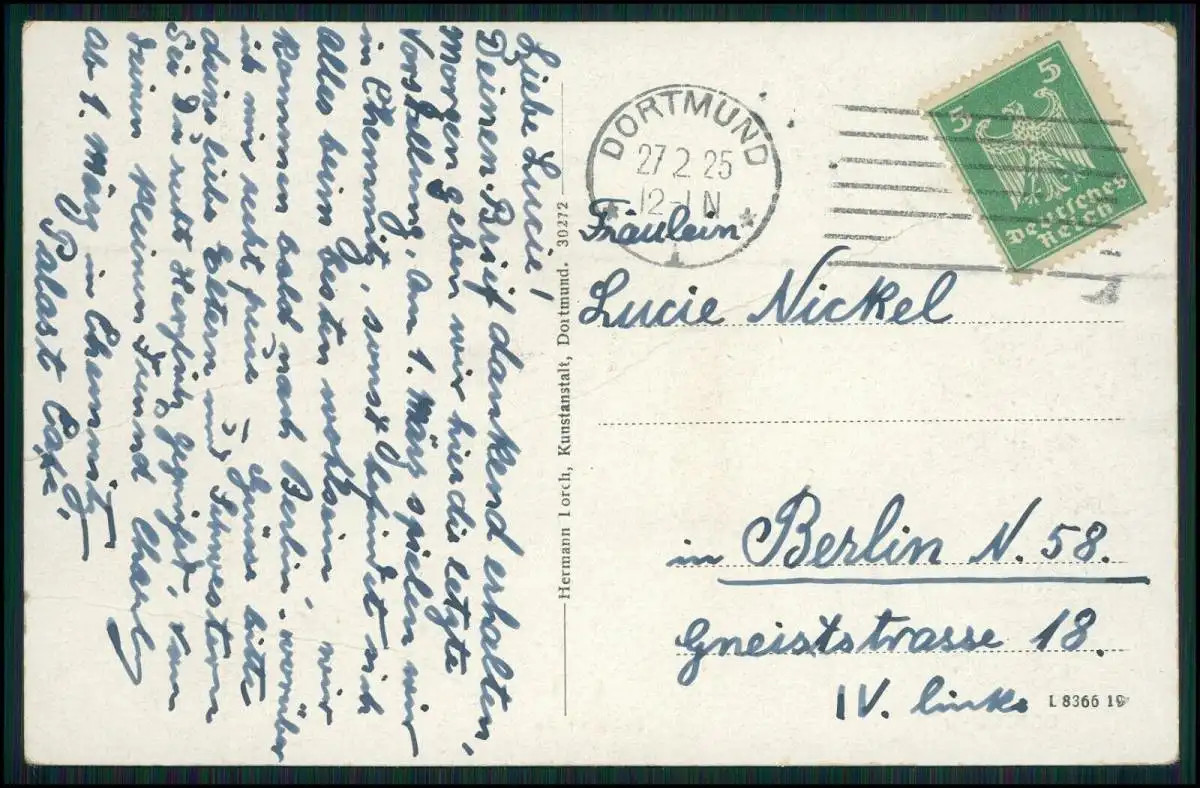 Liebe Lucie!
Deinen Brief dankend erhalten,
Morgen geben wir hier die letzte
Vorstellung, am 1. März spielen wir
in Chemnitz, sonst befindet sich
alles beim besten wohlsein, wir
kommen bald nach Berlin, worüber
ich mir sehr freue. Grüsse bitte
deine liebe Eltern und Schwestern
Sei Du recht herzlich gegrüsst, von
deinem kleinen Freund Charly
ab 1. März in Chemnitz
Palast Café.
Hermann Lorch, Kunstanstalt, Dortmund. 30272
DORTMUND
27.2.25
12-1 N
1
5
5
Deutsches
Reich
Fräulein
Lucie Nickel
in Berlin N. 58.
Gneiststrasse 18.
IV. links
L 8366 19